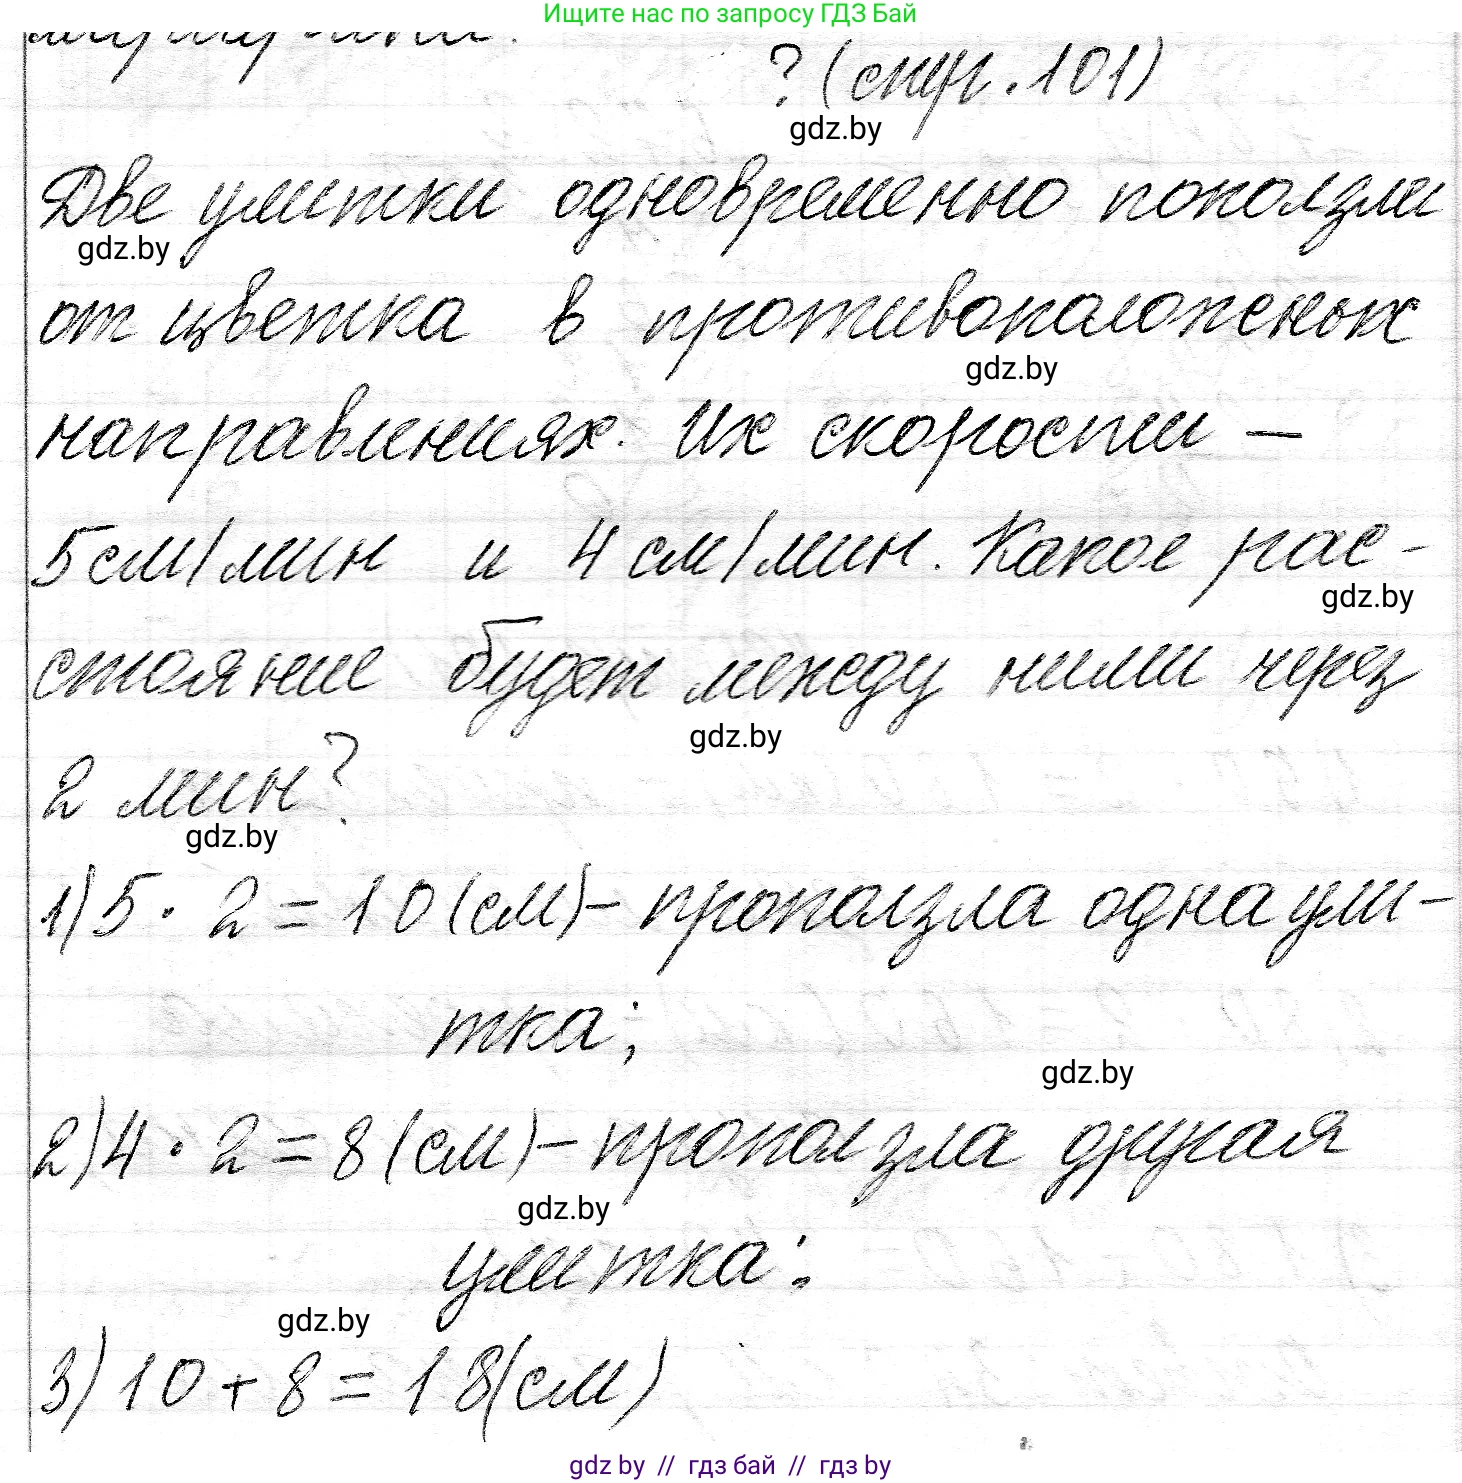 Ищите нас по запросу ГДЗ Бай
? (стр. 101)
gdz.by
Две улитки одновременно поползли
gdz.by
от цветка в противоположных
gdz.by
направлениях. Их скорости –
5 см/мин и 4 см/мин. Какое рас-
gdz.by
стояние будет между ними через
gdz.by
2 мин?
gdz.by
1) 5 · 2 = 10 (см) – проползла одна ули-
тка;
gdz.by
2) 4 · 2 = 8 (см) – проползла другая
gdz.by
улитка;
gdz.by
3) 10 + 8 = 18 (см)
gdz.by // гдз бай // гдз by